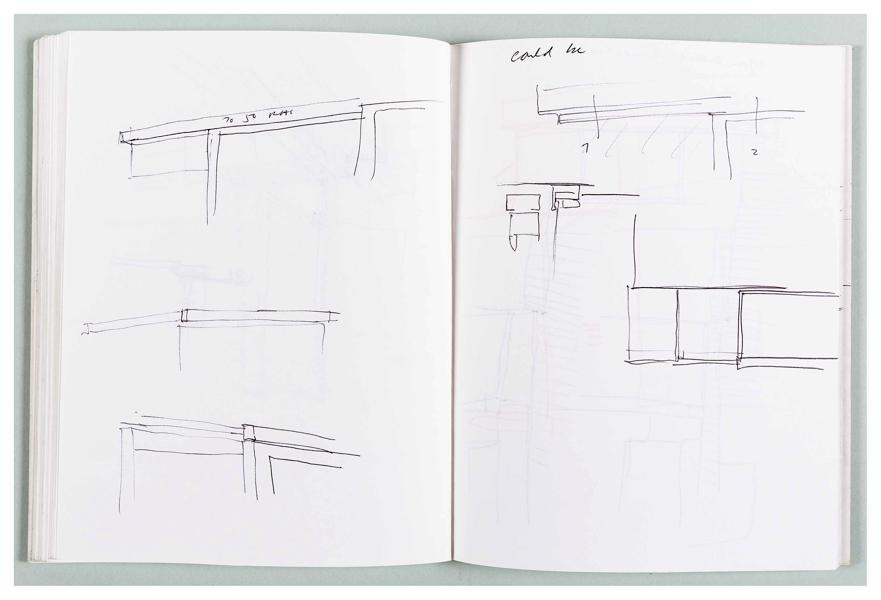 70 50 RHS
could be
1
2